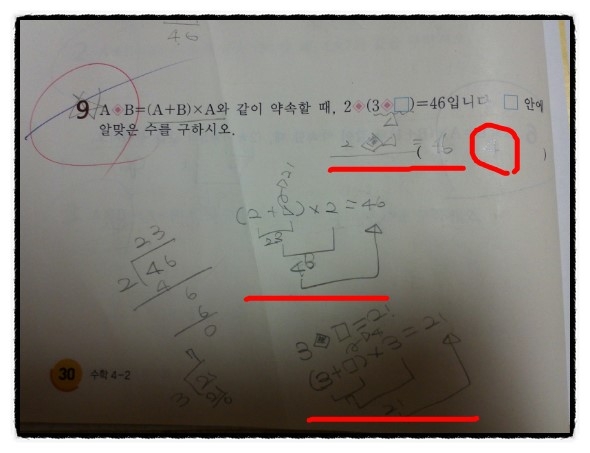 46
9 A◈B=(A+B)×A와 같이 약속할 때, 2◈(3◈□)=46입니다. □ 안에
알맞은 수를 구하시오.
2 ◈ △ = 46
( 4 )
21
(2+△)×2=46
23
46
23
2 46
4
6
6
0
3 ◈ □ = 21
(3+□)×3=21
21
7
3
30 수학 4-2